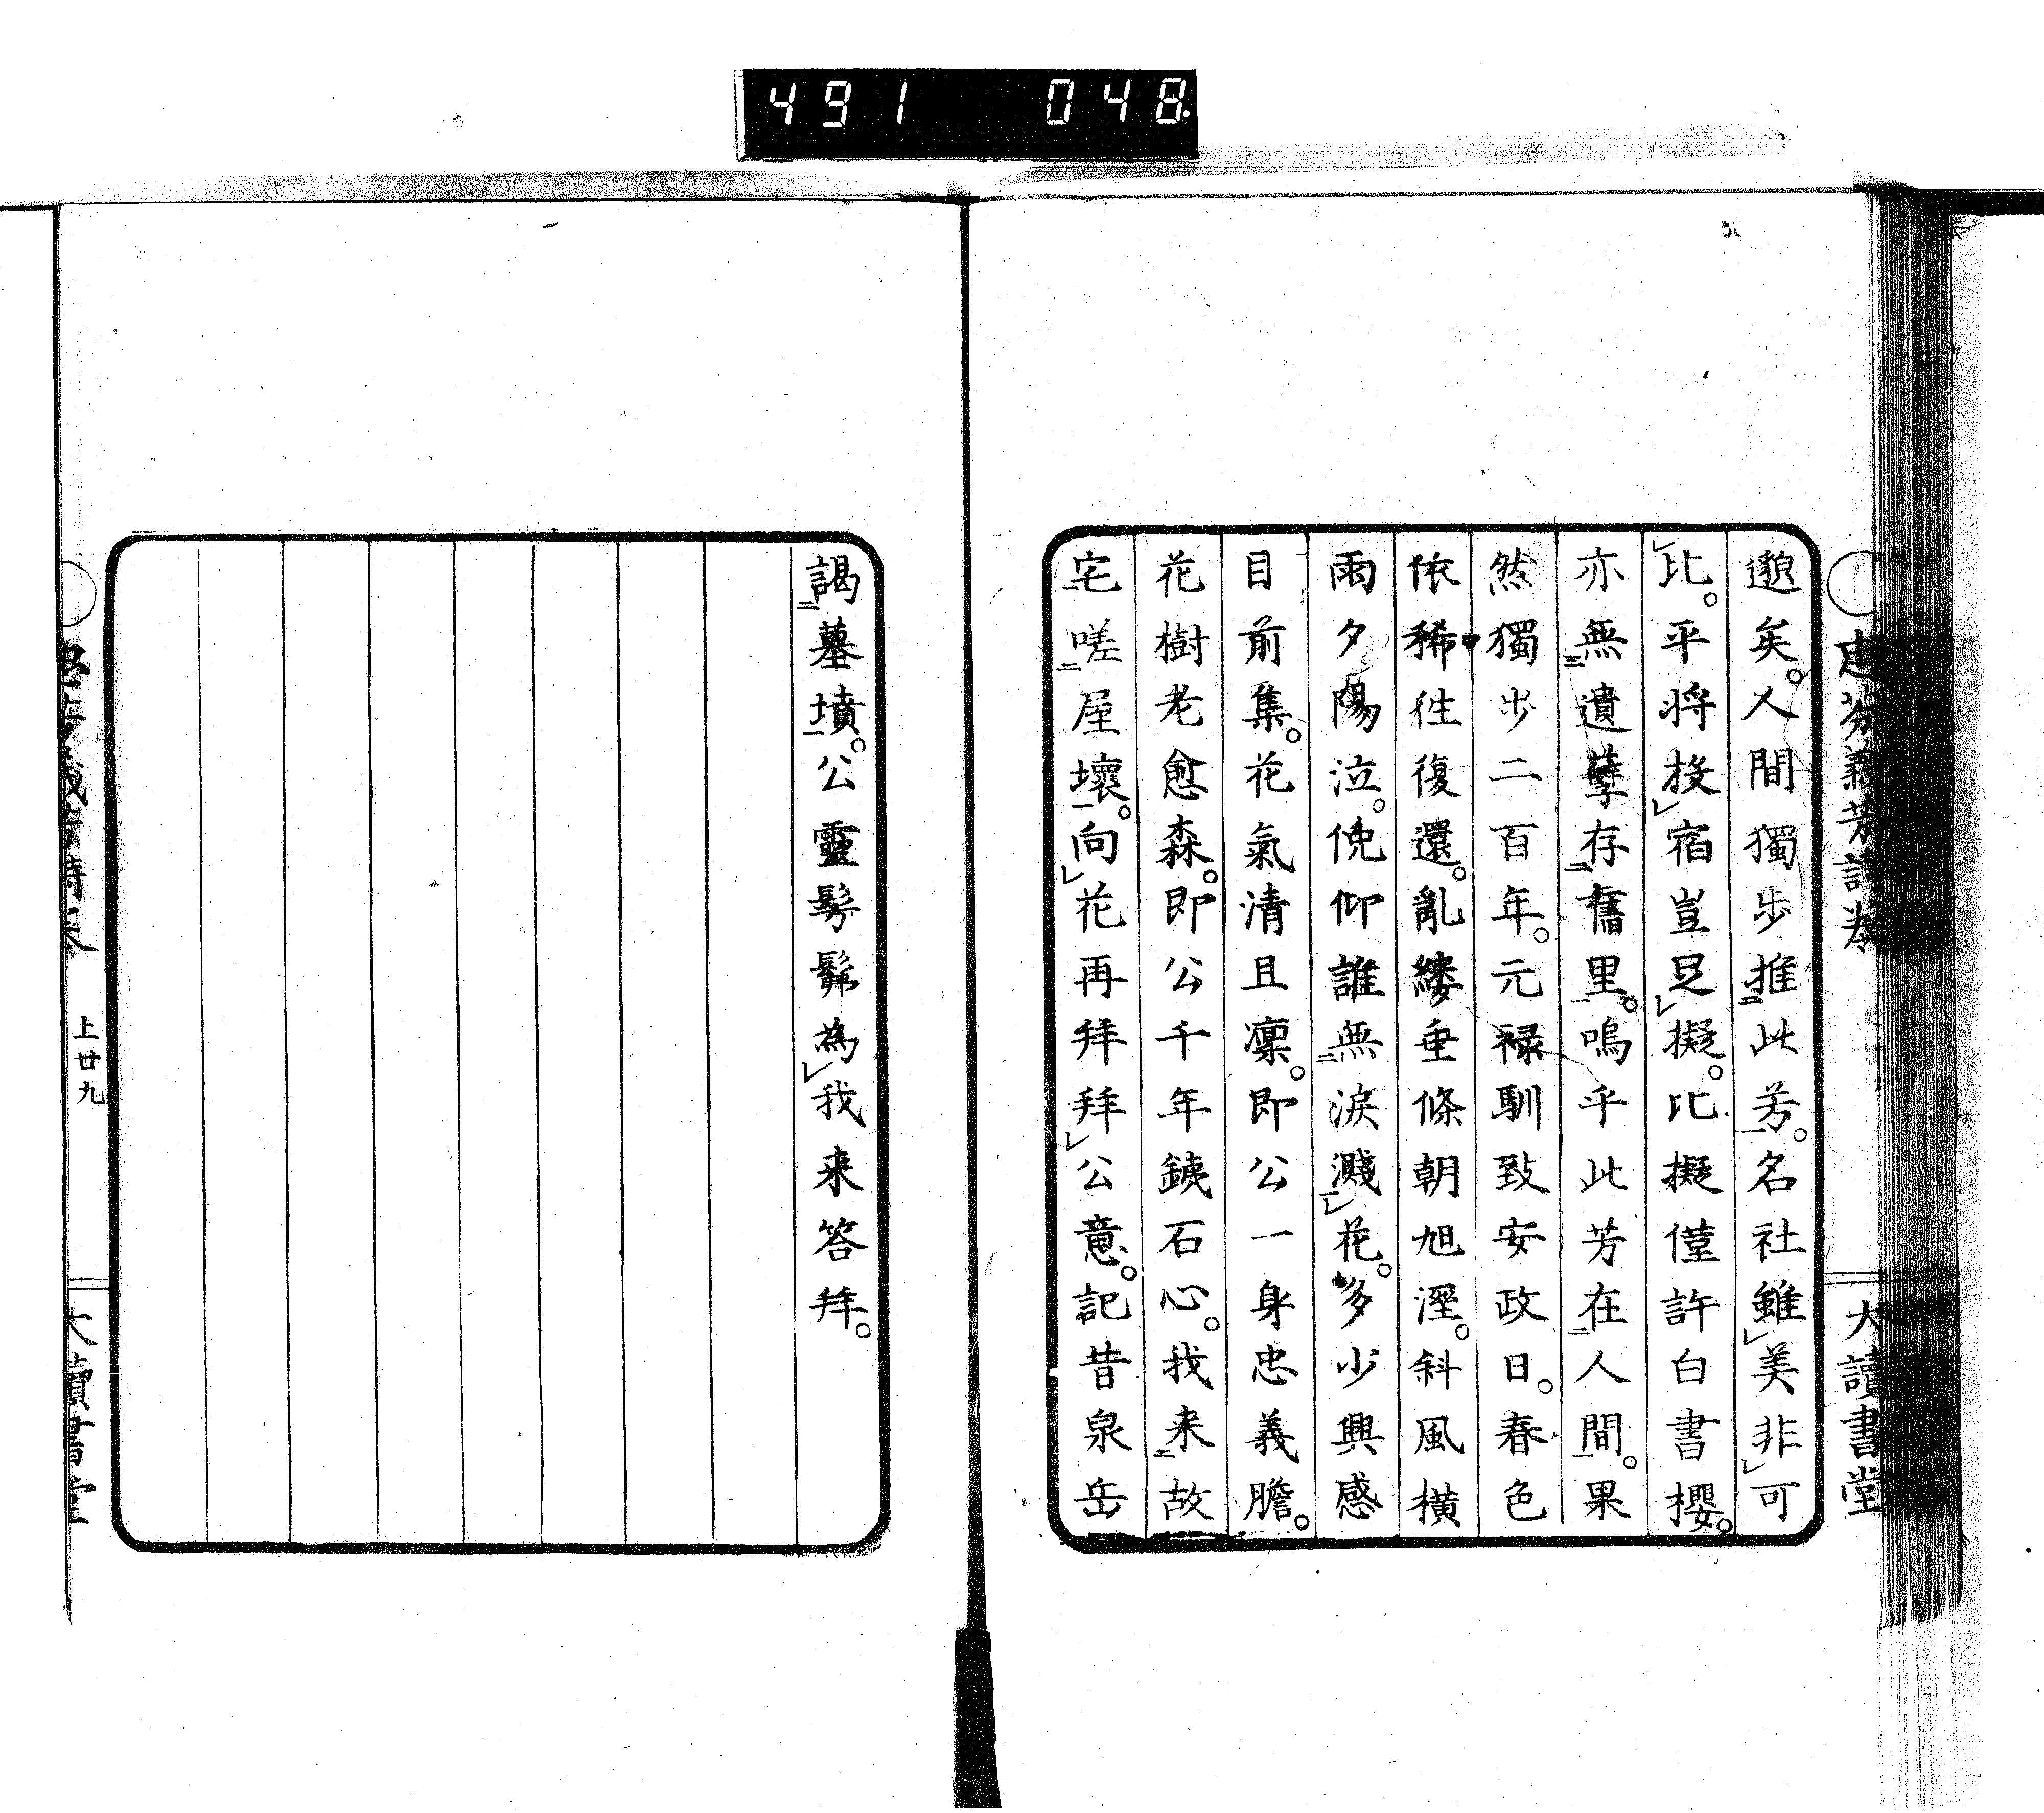 491 048
邈矣。人間獨步推此芳。名社雖美非可
比。平將投宿豈足擬。比擬僅許白書櫻。
亦無遺孽存舊里。嗚乎此芳在人間。果
然獨步二百年。元祿馴致安政日。春色
依稀往復還。亂縷垂條朝旭溼。斜風橫
雨夕陽泣。俛仰誰無淚濺花。多少興感
目前集。花氣清且凜。即公一身忠義膽。
花樹老愈森。即公千年鐵石心。我来故
宅嗟屋壞。向花再拜拜公意。記昔泉岳
大讀書堂
謁墓墳。公靈髣髴為我来答拜。
上廿九